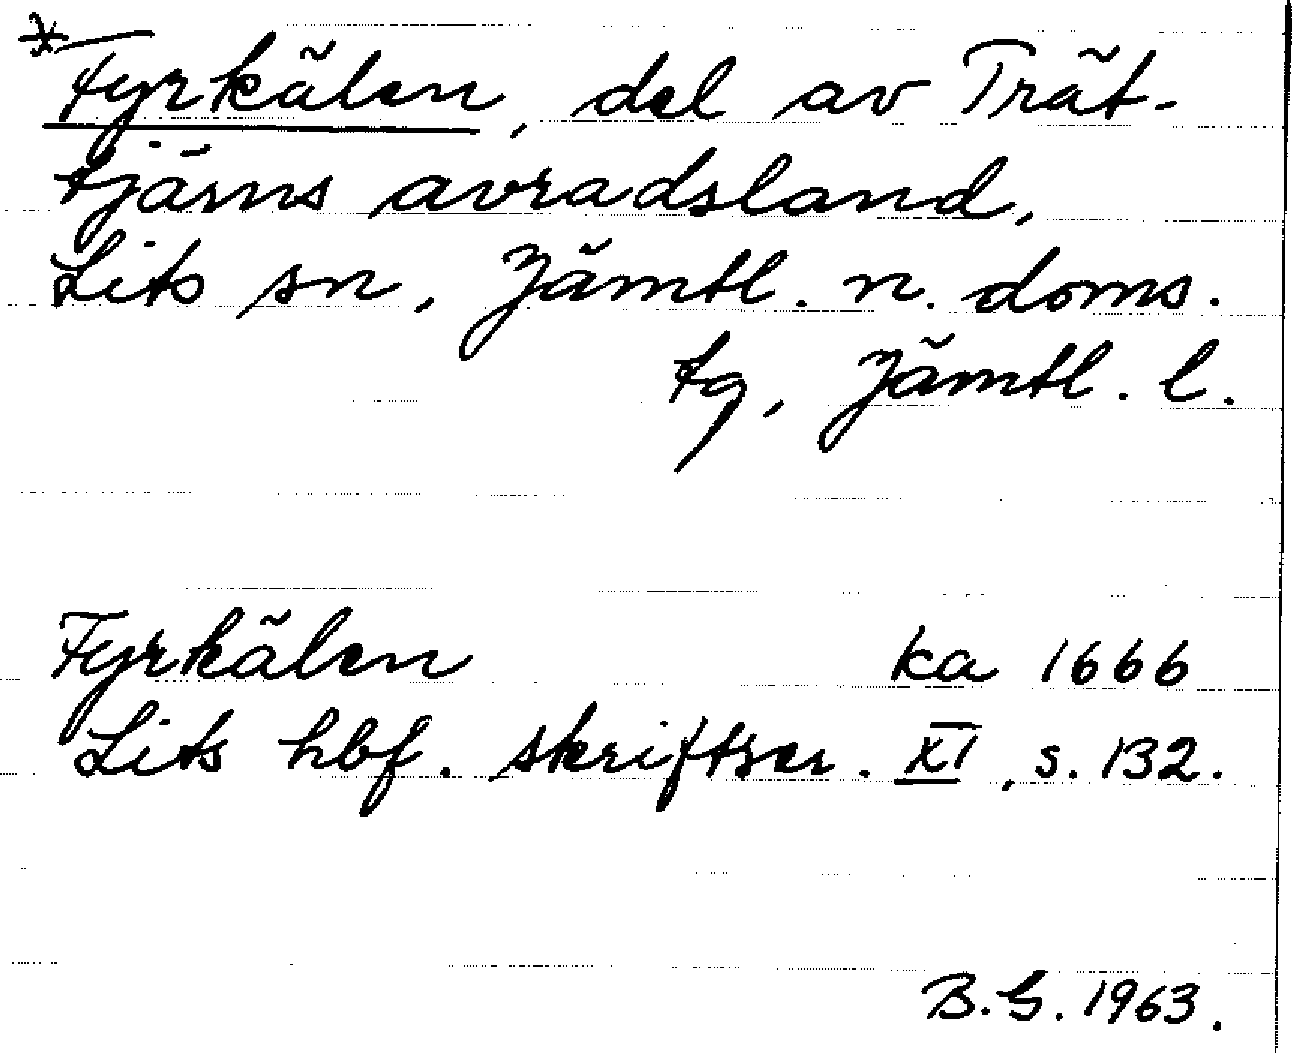 * Fyrkälen, del av Trät-
tjärns avradsland,
Lits sn, Jämtl. n. doms.
tg, Jämtl. l.
Fyrkälen ka 1666
Lits hbf. skriftser. XI, s. 132.
B.G. 1963.